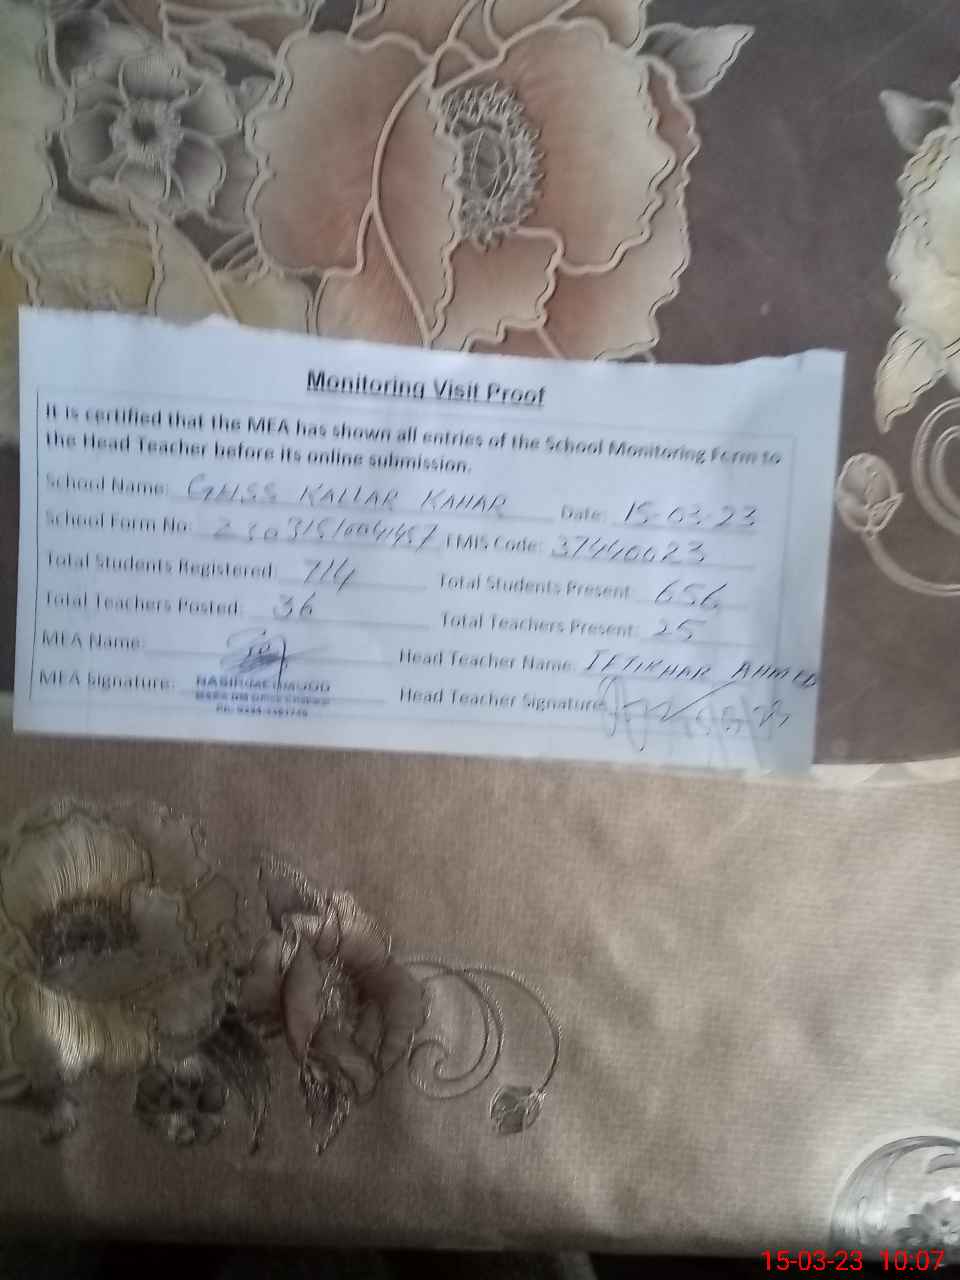 Monitoring Visit Proof
It is certified that the MEA has shown all entries of the School Monitoring Form to
the Head Teacher before its online submission.
School Name: GHSS KALLAR KAHAR Date: 15-03-23
School Form No: EMIS Code: 37440023
Total Students Registered: 714 Total Students Present: 656
Total Teachers Posted: 36 Total Teachers Present: 25
MEA Name: Head Teacher Name: IFTIKHAR AHMED
MEA Signature: Head Teacher Signature:
15-03-23 10:07